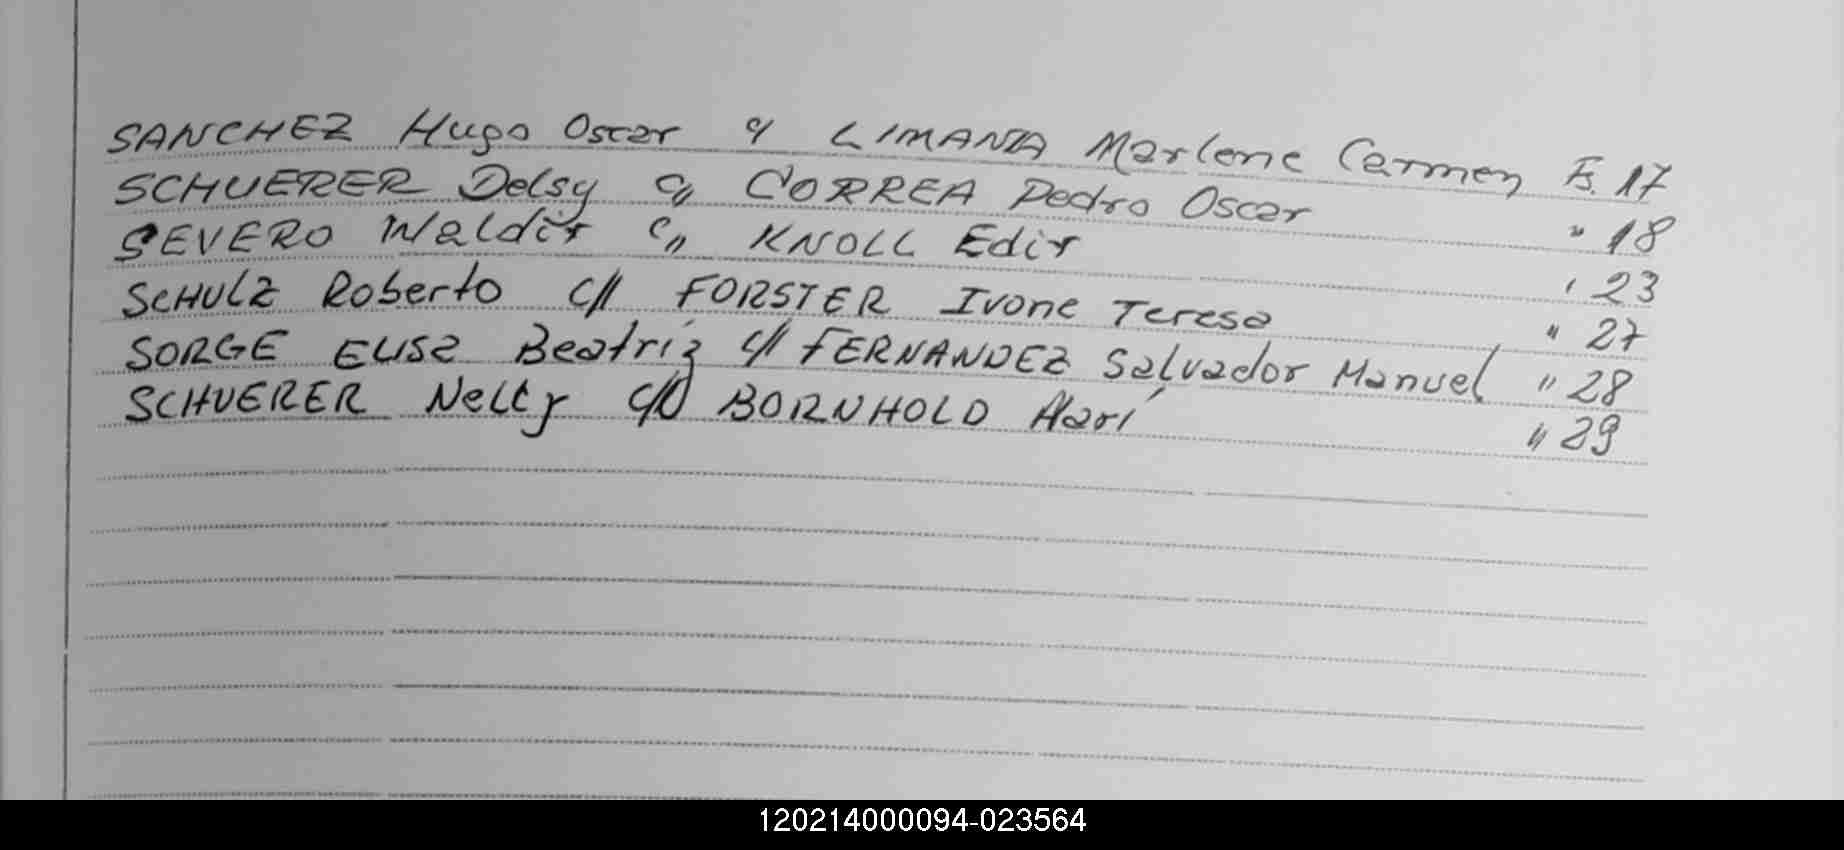 SANCHEZ Hugo Oscar c/ LIMANA Marlene Carmen F. 17
SCHUERER Delsy c/ CORREA Pedro Oscar " 18
SEVERO Waldir c/ KNOLL Edir " 23
SCHULZ Roberto c// FORSTER Ivone Teresa " 27
SORGE ELISA Beatriz c/ FERNANDEZ Salvador Manuel " 28
SCHUERER Nelly c/ BORNHOLD Harí " 29
120214000094-023564